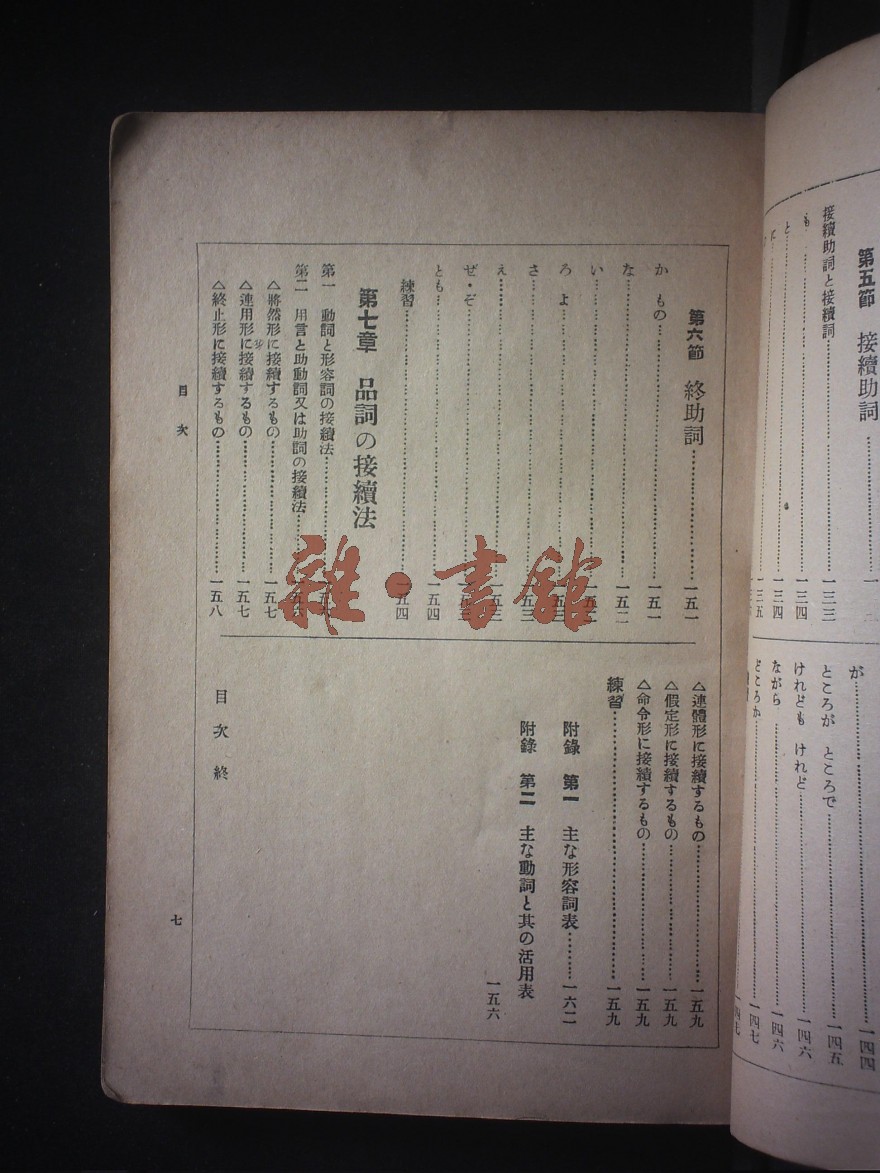 第五節 接續助詞
接續助詞と接續詞 一三三
も 一三四
と 一三四
に 一三五
が 一四四
ところが ところで 一四五
けれども けれど 一四六
ながら 一四六
どころか 一四七
第六節 終助詞 一五一
か もの 一五一
な 一五二
い
ろ よ
さ
え
ぜ・ぞ
とも 一五四
練習 一五四
第七章 品詞の接續法
第一 動詞と形容詞の接續法
第二 用言と助動詞又は助詞の接續法
△將然形に接續するもの 一五七
△連用形に接續するもの 一五七
△終止形に接續するもの 一五八
△連體形に接續するもの 一五九
△假定形に接續するもの 一五九
△命令形に接續するもの 一五九
練習 一五九
附錄 第一 主な形容詞表 一六二
附錄 第二 主な動詞と其の活用表
一五六
目次終
目次
七
雜・書館